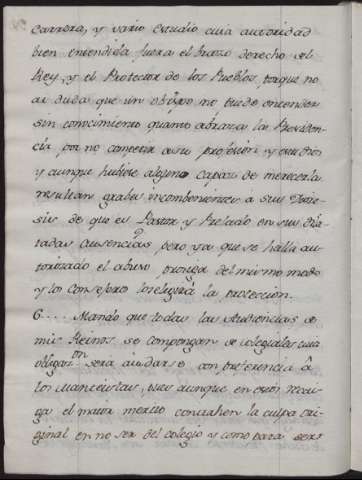 Carrera, y vario estudio cuia autoridad
bien entendida fuera el brazo derecho del
Rey, y el Protector de los Pueblos, porque no
ai duda que un obispo no puede entender
sin conocimiento quanto abraza la Presiden-
cia por no competir a su profesion, y estudios
y aunque hubiese alguno capaz de merecerla
resultan grabes incombenientes a sus Dioce-
sis de que es Pastor y Prelado en sus dila-
tadas ausencias, pero ya que se halla au-
torizado el abuso prosiga del mismo modo
y los Consejeros la
la proteccion.
6.... Mando que todas las Audiencias de
mis Reinos se compongan de colegiales cuia
obligac.on sera aiudarse con preferencia â
los Manteistas, pues aunque en estos recai-
ga el maior merito contrahen la culpa ori-
ginal en no ser del colegio, y como para sers